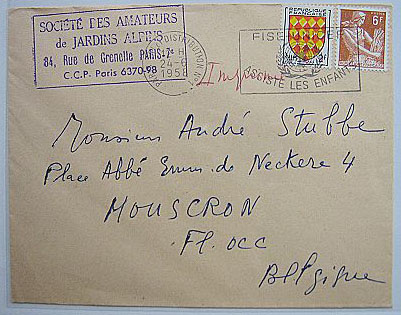 SOCIÉTÉ DES AMATEURS
de JARDINS ALPINS
84, Rue de Grenelle PARIS-7e
C.C.P. Paris 6370-98
DISTRIBUTION
24-6
1958
Imprimé
REPUBLIQUE
FRANÇAISE
6F
ISTE LES ENFANT
Monsieur André Stubbe
Place Abbé Emm. de Neckere 4
MOUSCRON
Fl. occ
Belgique